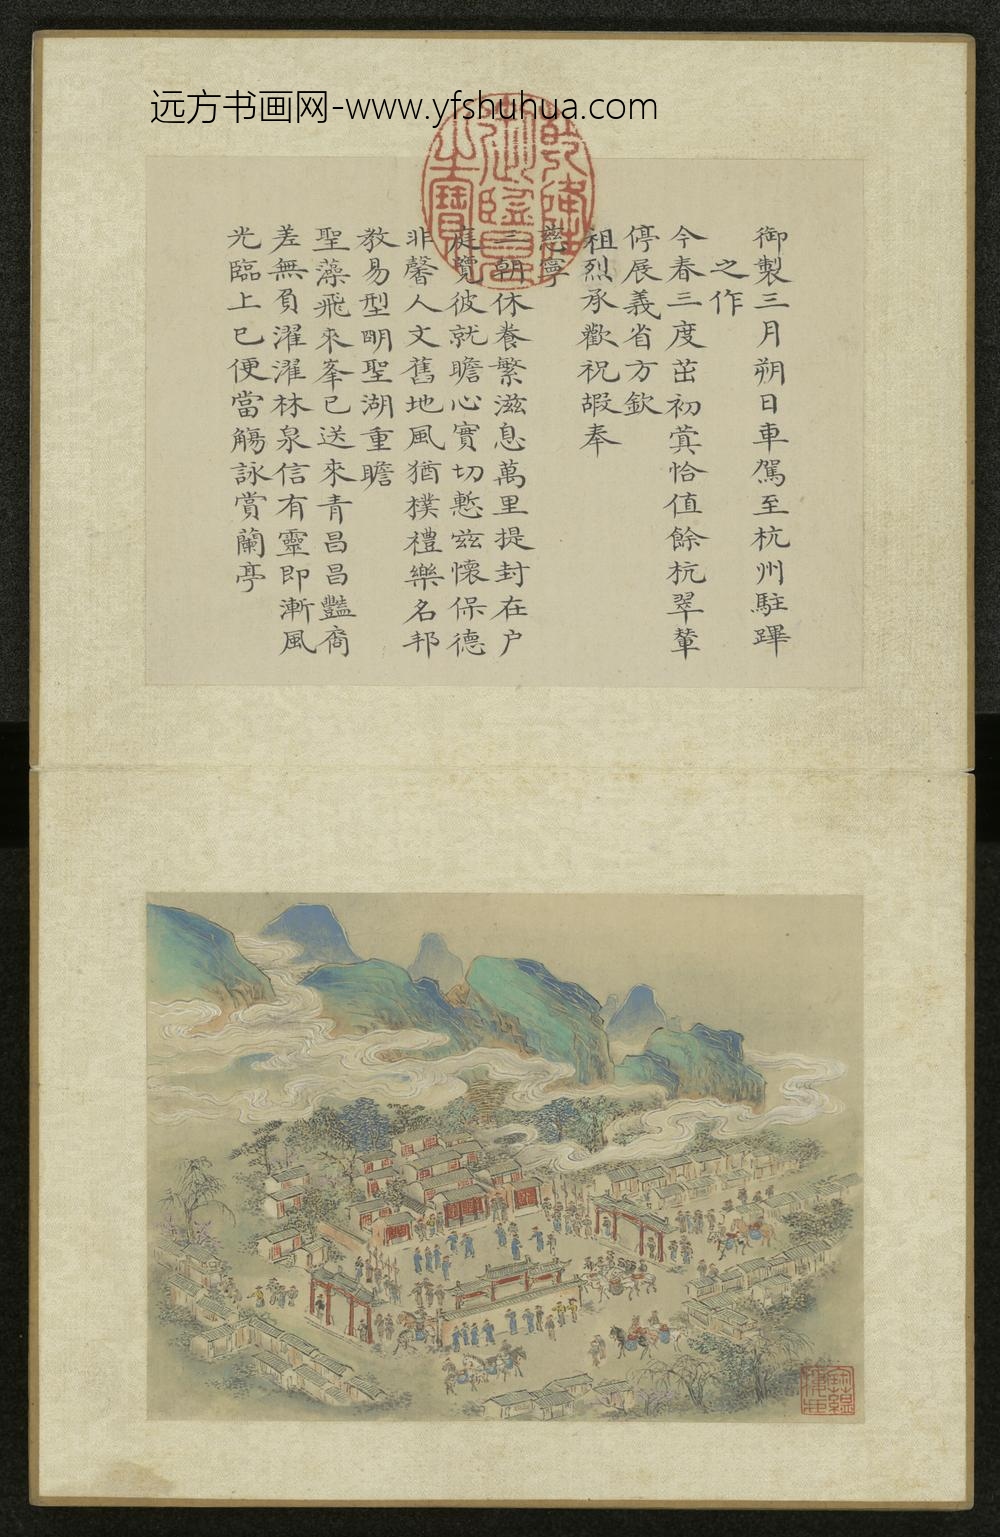 远方书画网-www.yfshuhua.com
乾隆御覽之寶
御製三月朔日車駕至杭州駐蹕
之作
今春三度茁初蓂恰值餘杭翠輦
停展義省方欽
祖烈承歡祝嘏奉
慈寧
三朝休養繁滋息萬里提封在户
庭覽彼就瞻心實切慙兹懷保德
非馨人文舊地風猶樸禮樂名邦
教易型明聖湖重瞻
聖藻飛來峯已送來青昌昌豔裔
差無負濯濯林泉信有靈即漸風
光臨上巳便當觴詠賞蘭亭